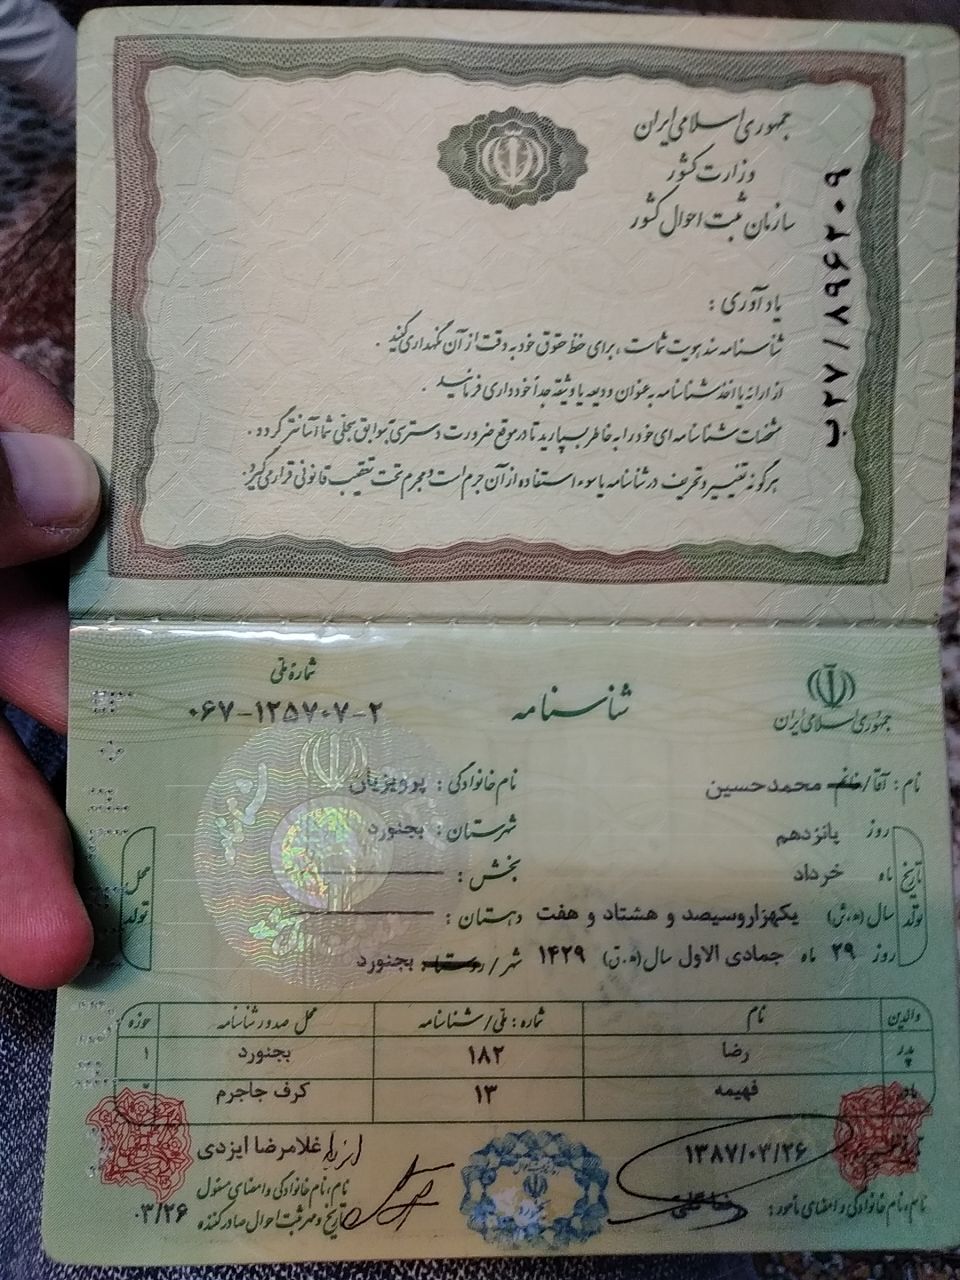 جمهوری اسلامی ایران
وزارت کشور
سازمان ثبت احوال کشور
ب۲۷/۸۹۶۲۰۹
یادآوری :
شناسنامه سند هویت شماست ، برای حفظ حقوق خود به دقت از آن نگهداری کنید .
از ارائه یا اخذ شناسنامه به عنوان ودیعه یا وثیقه جداً خودداری فرمائید .
مشخصات شناسنامه ای خود را به خاطر بسپارید تا در موقع ضرورت دسترسی به سوابق سجلی شما آسانتر گردد .
هرگونه تغییر و تحریف در شناسنامه یا سوء استفاده از آن جرم است و مجرم تحت تعقیب قانونی قرار می‌گیرد.
جمهوری اسلامی ایران
شناسنامه
شماره ملی
۰۶۷-۱۲۵۷۰۷-۲
نام : آقا/خانم محمدحسین نام خانوادگی : پرویزیان
تاریخ تولد
روز پانزدهم
ماه خرداد
سال (ه.ش) یکهزاروسیصد و هشتاد و هفت
روز ۲۹ ماه جمادی الاول سال (ه.ق) ۱۴۲۹
محل تولد
شهرستان : بجنورد
بخش :
دهستان :
شهر / روستا : بجنورد
والدین نام شماره : ملی/شناسنامه محل صدور شناسنامه حوزه
پدر رضا ۱۸۲ بجنورد ۱
مادر فهیمه ۱۳ کرف جاجرم
۱۳۸۷/۰۳/۲۶
نام، نام خانوادگی و امضای مأمور :
غلامرضا ایزدی
نام، نام خانوادگی و امضای مسئول
تاریخ و مهر ثبت احوال صادرکننده
۰۳/۲۶